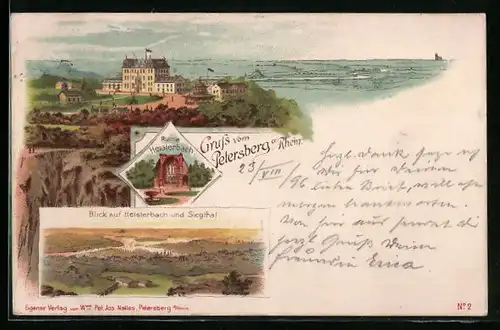 Gruß vom
Petersberg a/Rhein.
Ruine
Heisterbach
23/VIII 96
Herzl. Dank sage ich
Dir für Deinen
lieben Brief, will ihn
morgen beantworten.
Von hier aus sendet die
herzl. Grüße Deine
Freundin Erica
Blick auf Heisterbach und Siegthal
Eigener Verlag von Wwe Pet. Jos. Nelles, Petersberg a/Rhein
No 2